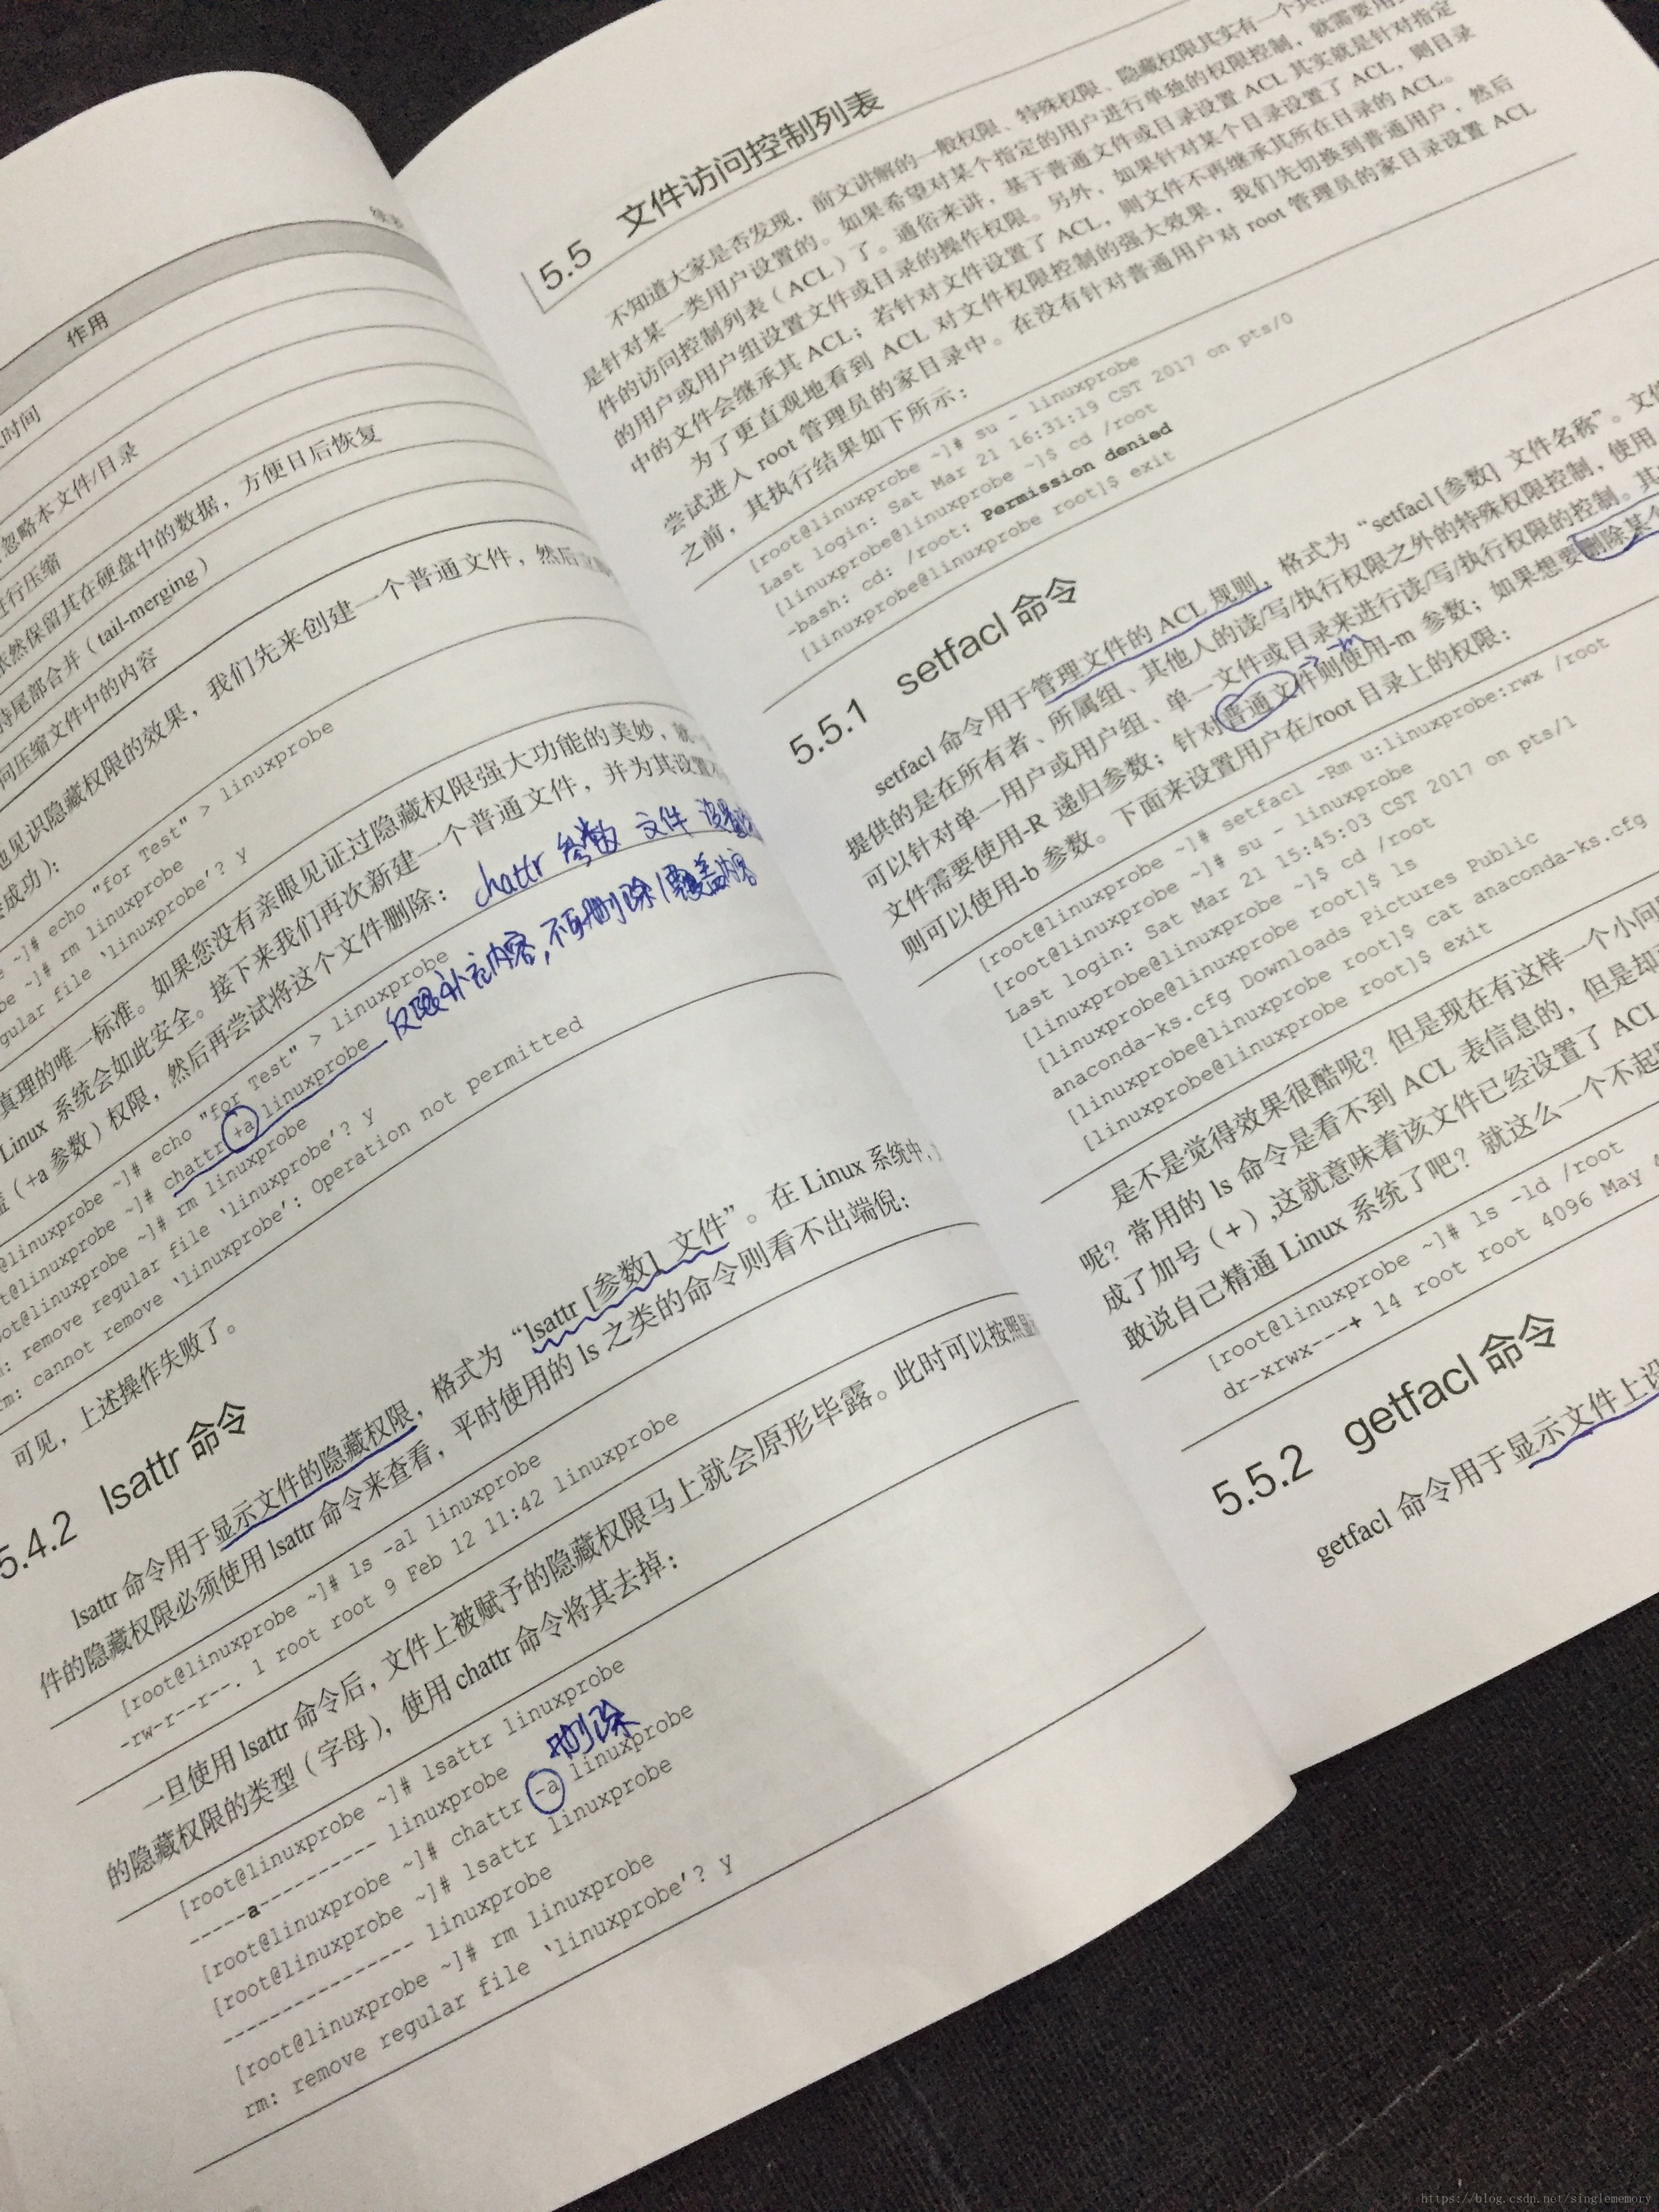 作用
时间
忽略本文件/目录
行压缩
依然保留其在硬盘中的数据，方便日后恢复
持尾部合并（tail-merging）
问压缩文件中的内容
地见识隐藏权限的效果，我们先来创建一个普通文件，然后
成功）：
~]# echo "for Test" > linuxprobe
~]# rm linuxprobe
gular file ‘linuxprobe’? y
真理的唯一标准。如果您没有亲眼见证过隐藏权限强大功能的美妙，就
Linux 系统会如此安全。接下来我们再次新建一个普通文件，并为其设置不
（+a 参数）权限，然后再尝试将这个文件删除：
chattr 参数 文件
仅限补充内容，不可删除/覆盖内容
@linuxprobe ~]# echo "for Test" > linuxprobe
t@linuxprobe ~]# chattr +a linuxprobe
ot@linuxprobe ~]# rm linuxprobe
: remove regular file ‘linuxprobe’? y
rm: cannot remove ‘linuxprobe’: Operation not permitted
可见，上述操作失败了。
5.4.2 lsattr 命令
lsattr 命令用于显示文件的隐藏权限，格式为“lsattr [参数] 文件”。在 Linux 系统中，
件的隐藏权限必须使用 lsattr 命令来查看，平时使用的 ls 之类的命令则看不出端倪：
[root@linuxprobe ~]# ls -al linuxprobe
-rw-r--r--. 1 root root 9 Feb 12 11:42 linuxprobe
一旦使用 lsattr 命令后，文件上被赋予的隐藏权限马上就会原形毕露。此时可以按照
的隐藏权限的类型（字母），使用 chattr 命令将其去掉：
[root@linuxprobe ~]# lsattr linuxprobe
-----a---------- linuxprobe
删除
[root@linuxprobe ~]# chattr -a linuxprobe
[root@linuxprobe ~]# lsattr linuxprobe
---------------- linuxprobe
[root@linuxprobe ~]# rm linuxprobe
rm: remove regular file ‘linuxprobe’? y
5.5 文件访问控制列表
不知道大家是否发现，前文讲解的一般权限、特殊权限、隐藏权限其实有一个共
是针对某一类用户设置的。如果希望对某个指定的用户进行单独的权限控制，就需要用
件的访问控制列表（ACL）了。通俗来讲，基于普通文件或目录设置 ACL 其实就是针对指定
的用户或用户组设置文件或目录的操作权限。另外，如果针对某个目录设置了 ACL，则目录
中的文件会继承其 ACL；若针对文件设置了 ACL，则文件不再继承其所在目录的 ACL。
为了更直观地看到 ACL 对文件权限控制的强大效果，我们先切换到普通用户，然后
尝试进入 root 管理员的家目录中。在没有针对普通用户对 root 管理员的家目录设置 ACL
之前，其执行结果如下所示：
[root@linuxprobe ~]# su - linuxprobe
Last login: Sat Mar 21 16:31:19 CST 2017 on pts/0
[linuxprobe@linuxprobe ~]$ cd /root
-bash: cd: /root: Permission denied
[linuxprobe@linuxprobe root]$ exit
5.5.1 setfacl 命令
setfacl 命令用于管理文件的 ACL 规则，格式为“setfacl [参数] 文件名称”。文件
提供的是在所有者、所属组、其他人的读/写/执行权限之外的特殊权限控制，使用
可以针对单一用户或用户组、单一文件或目录来进行读/写/执行权限的控制。其
文件需要使用-R 递归参数；针对普通文件则使用-m 参数；如果想要删除某个
→ -m
则可以使用-b 参数。下面来设置用户在/root 目录上的权限：
[root@linuxprobe ~]# setfacl -Rm u:linuxprobe:rwx /root
[root@linuxprobe ~]# su - linuxprobe
Last login: Sat Mar 21 15:45:03 CST 2017 on pts/1
[linuxprobe@linuxprobe ~]$ cd /root
[linuxprobe@linuxprobe root]$ ls
anaconda-ks.cfg Downloads Pictures Public
[linuxprobe@linuxprobe root]$ cat anaconda-ks.cfg
[linuxprobe@linuxprobe root]$ exit
是不是觉得效果很酷呢？但是现在有这样一个小问
呢？常用的 ls 命令是看不到 ACL 表信息的，但是却
成了加号（+）,这就意味着该文件已经设置了 ACL
敢说自己精通 Linux 系统了吧？就这么一个不起
[root@linuxprobe ~]# ls -ld /root
dr-xrwx---+ 14 root root 4096 May
5.5.2 getfacl 命令
getfacl 命令用于显示文件上设
https://blog.csdn.net/singlememory